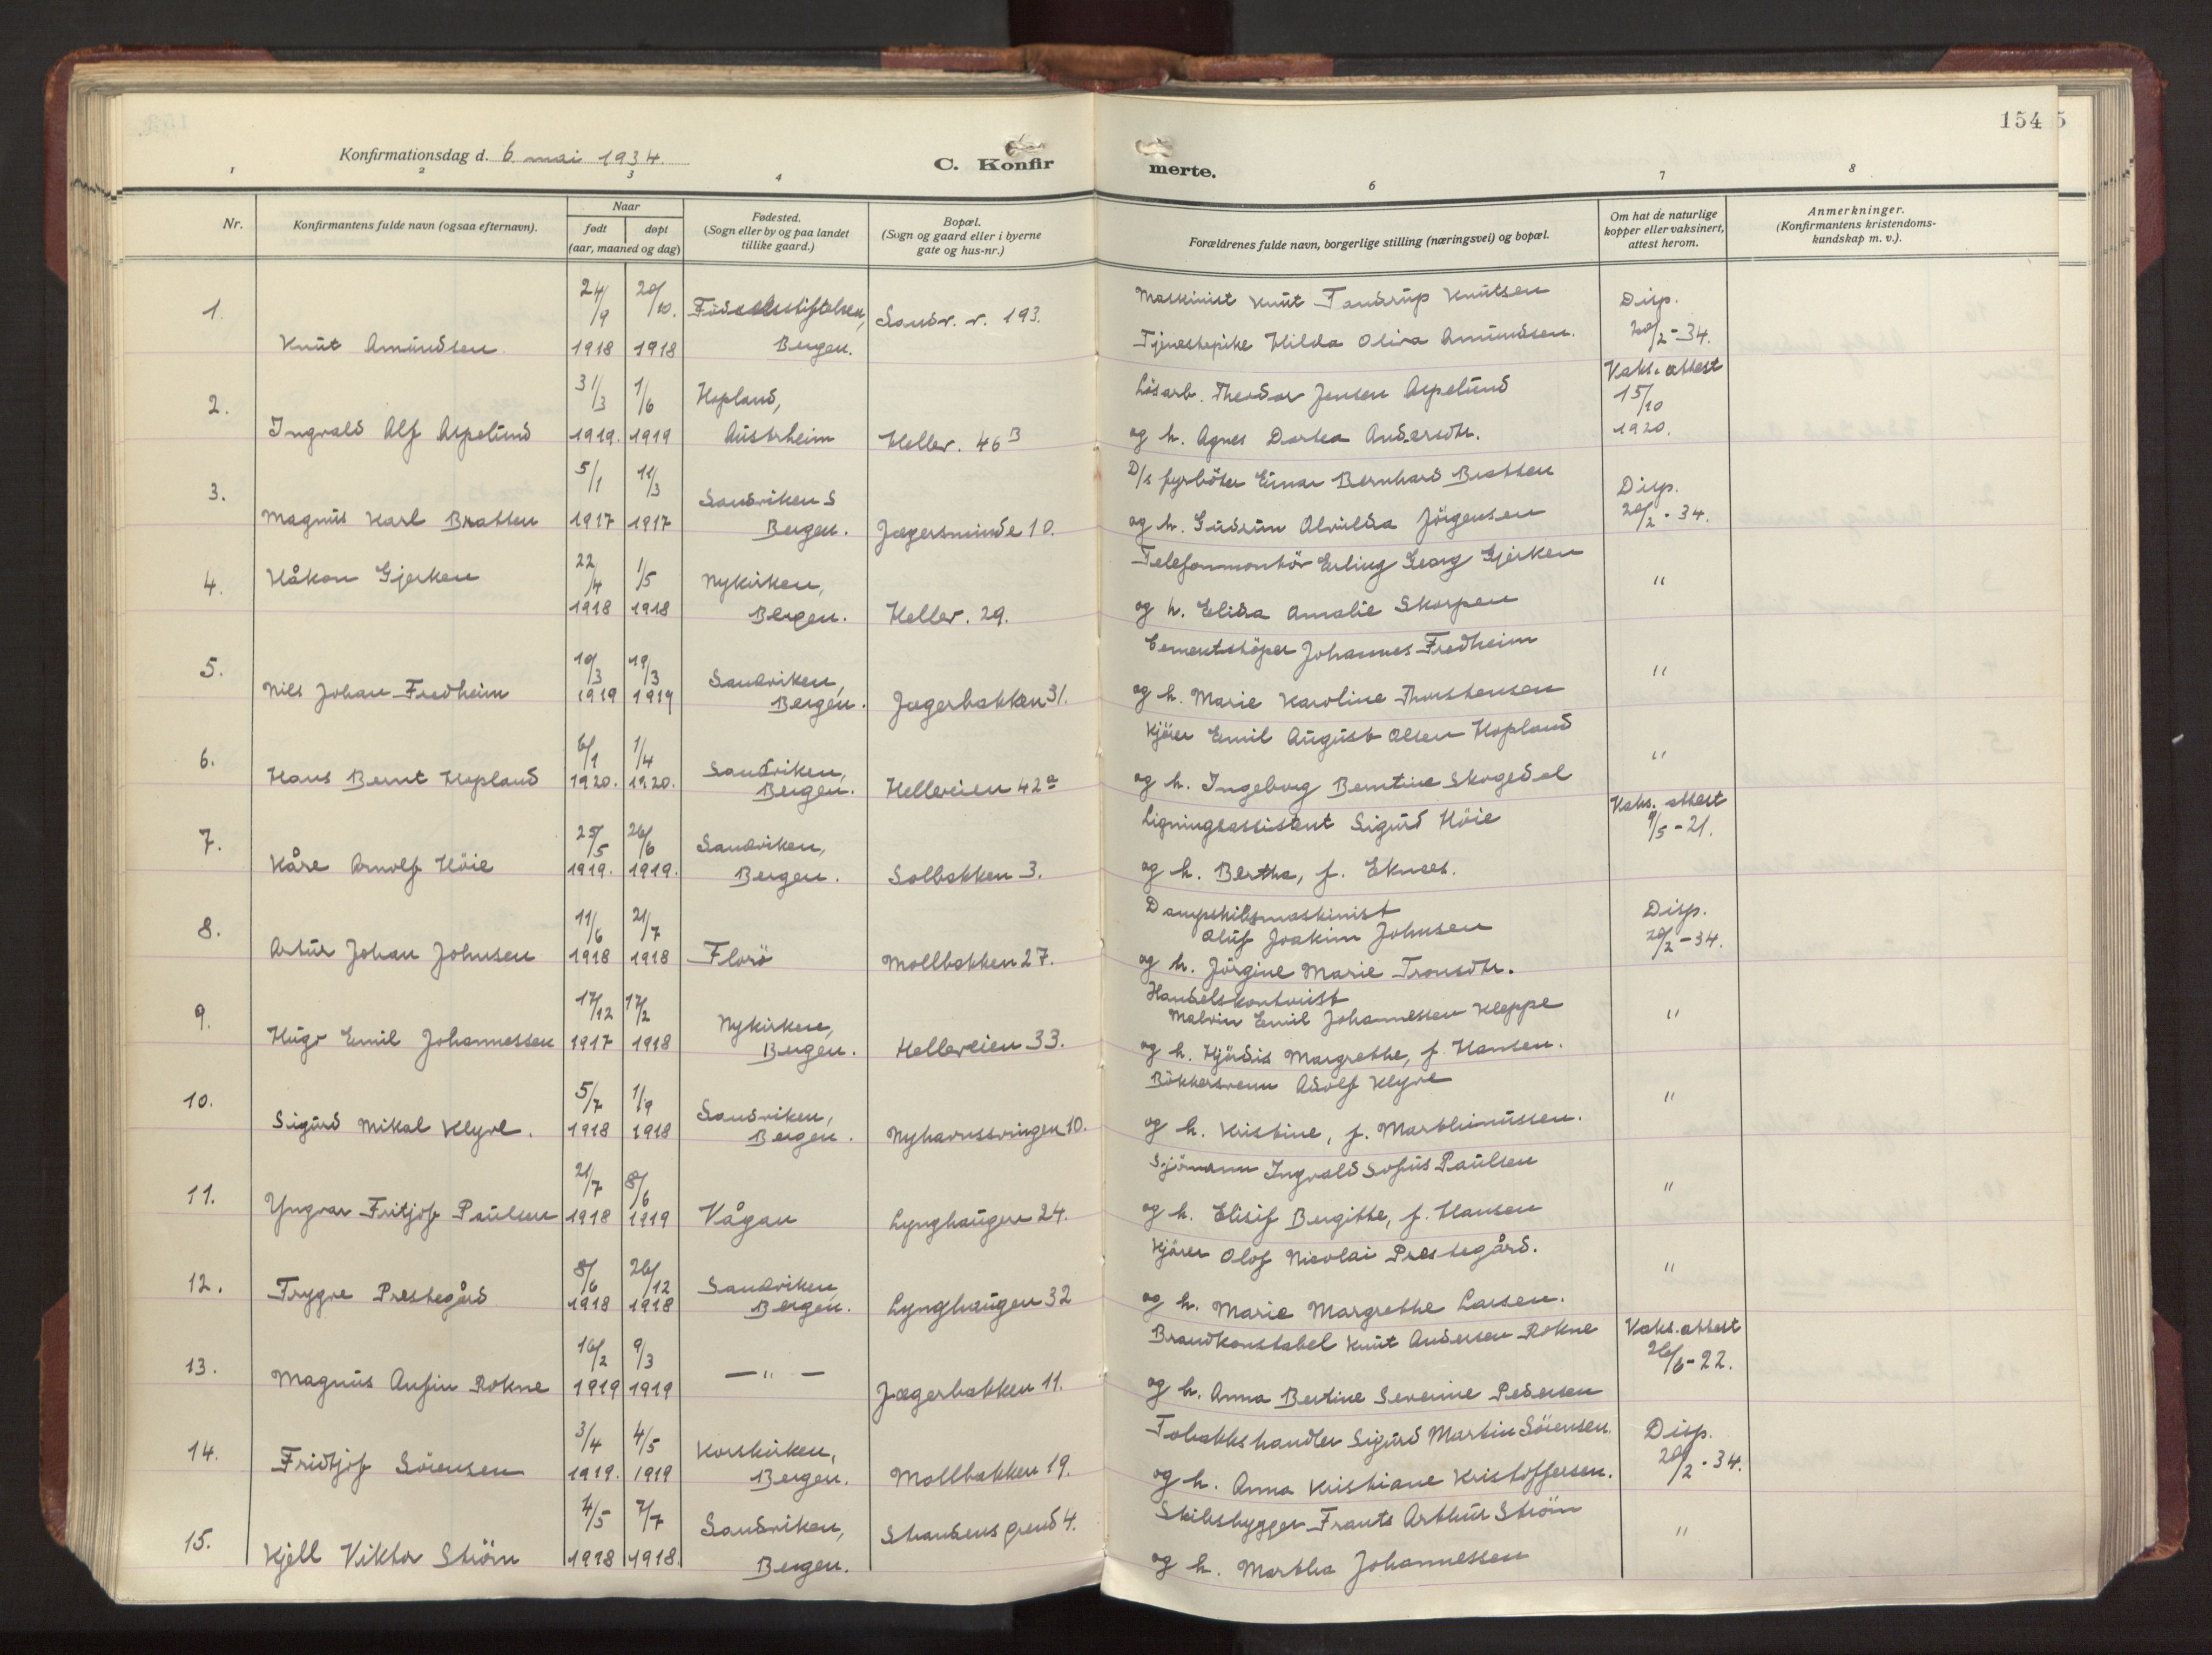 154 5
Konfirmationsdag d. 6 mai 1934.
C. Konfir merte.
1 2 3 4 6 7 8
Nr.
Konfirmantens fulde navn (ogsaa efternavn).
Naar
født døpt
(aar, maaned og dag)
Fødested.
(Sogn eller by og paa landet
tillike gaard.)
Bopæl.
(Sogn og gaard eller i byerne
gate og hus-nr.)
Forældrenes fulde navn, borgerlige stilling (næringsvei) og bopæl.
Om hat de naturlige
kopper eller vaksinert,
attest herom.
Anmerkninger.
(Konfirmantens kristendoms-
kundskap m. v.).
1. 24/9 20/10. Födselsstiftelsen, Sandv. v. 193. Maskinist Knut Tandrup Knutsen Disp.
Knut Amundsen 1918 1918 Bergen. Tjenestepike Hilda Oliva Amundsen. 20/2-34.
2. 31/3 1/6 Hopland, Lösarb. Theodor Jensen Aspelund Vaks. attest 15/10
Ingvald Alf Aspelund 1919. 1919 Austrheim Heller. 46 B og h. Agnes Dortea Andersdtr. 1920.
3. 5/1 11/3 Sandviken S D/s fyrböter Einar Bernhard Bratten Disp.
Magnus Karl Bratten 1917 1917 Bergen. Jægersminde 10. og h. Gudrun Alvilda Jörgensen 20/2-34.
4. Håkon Gjerken 22/4 1/5 Nykirken, Telefonmontör Erling Georg Gjerken "
1918 1918 Bergen. Heller. 29. og h. Elida Amalie Skorpen
5. 10/3 19/3 Sandviken, Cementstöper Johannes Fredheim "
Nils Johan Fredheim 1919 1919 Bergen. Jægerbakken 31. og h. Marie Karoline Thorstensen
6. 6/1 1/4 Sandviken, Kjörer Emil August Olsen Hopland "
Hans Bernt Hopland 1920. 1920. Bergen. Helleveien 42 a og h. Ingeborg Berntine Skogedal
7. 25/5 26/6 Sandviken, Ligningsassistent Sigurd Höie Vaks. attest
Kåre Arnolf Höie 1919. 1919. Bergen. Solbakken 3. og h. Bertha, f. Eknes. 9/5-21.
8. 11/6 21/7 Dampskibsmaskinist Disp.
Oluf Joakim Johnsen 20/2-34.
Artur Johan Johnsen 1918 1918 Florö Mollbakken 27. og h. Jörgine Marie Tronsdtr.
9. 17/12 17/2 Nykirken, Handelskontorist
Malvin Emil Johannessen Kleppe "
Hugo Emil Johannessen 1917 1918 Bergen. Helleveien 33. og h. Hjördis Margrethe, f. Hansen.
10. 5/7 1/9 Sandviken, Bökkersvenn Adolf Klyve "
Sigurd Mikal Klyve. 1918 1918 Bergen. Nyhavnssvingen 10. og h. Kristine, f. Marthinussen.
11. 21/7 8/6 Sjömann Ingvald Sofus Paulsen "
Yngvar Fritjof Paulsen 1918 1919 Vågan Lynghaugen 24. og h. Elisif Bergitte, f. Hansen
12. 8/6 26/12 Sandviken, Kjörer Olof Nicolai Prestegård. "
Trygve Prestegård 1918 1918 Bergen. Lynghaugen 32 og h. Marie Margrethe Larsen.
13. 16/2 9/3 Brandkonstabel Knut Andersen Rokne Vaks. attest
Magnus Anfin Rokne 1919 1919 — " — Jægerbakken 11. og h. Anna Bertine Severine Pedersen 26/6-22.
14. 3/4 4/5 Korskirken, Tobakkshandler Sigurd Martin Sörensen. Disp.
Fridtjof Sörensen 1919. 1919 Bergen. Mollbakken 19. og h. Anna Kristiane Kristoffersen. 20/2-34.
15. 4/5 7/7 Sandviken, Strandens grend 4. Skibsbygger Frants Arthur Ström "
Kjell Viktor Ström 1918 1918. Bergen. og h. Martha Johannessen